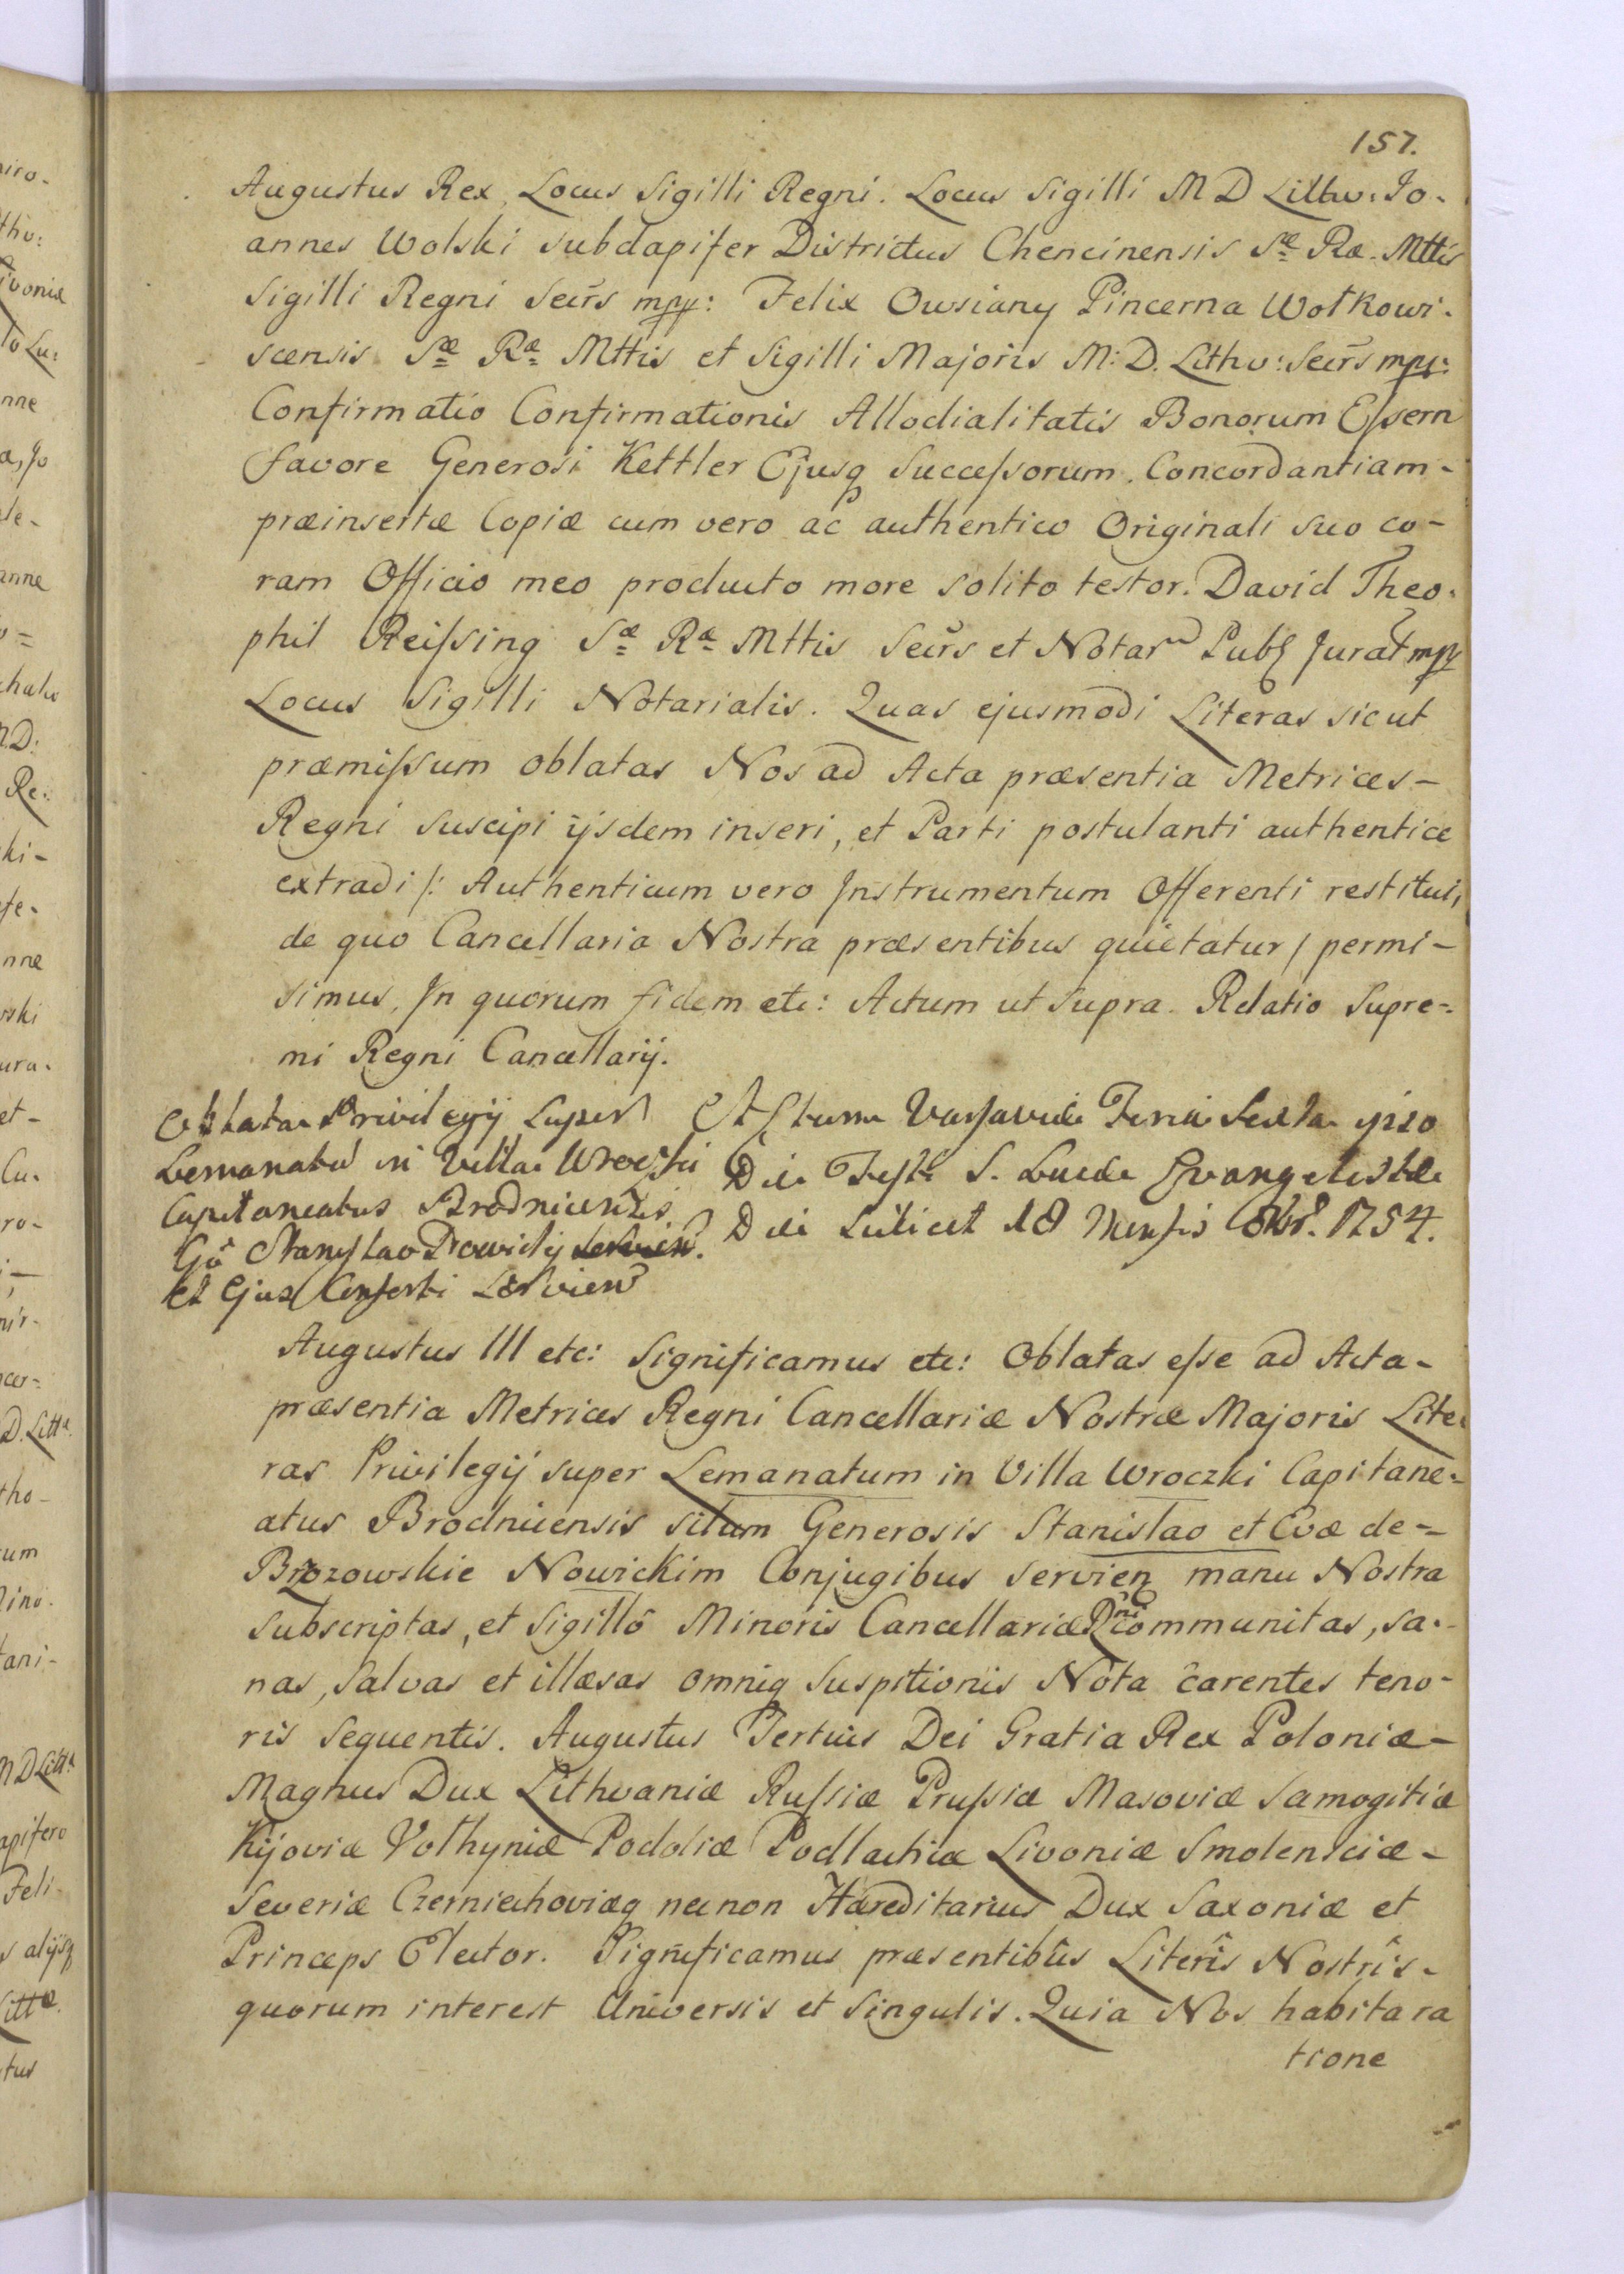 157.
Augustus Rex, Locus Sigilli Regni. Locus Sigilli M D Litthv: Jo-
annes Wolski Subdapifer Districtus Chencinensis Sæ Ræ. Mttis
Sigilli Regni Secrs mpp: Felix Owsiany Pincerna Wołkowi-
scensis Sæ Ræ Mttis et Sigilli Majoris M: D. Lithv: Secrs mpp:
Confirmatio Confirmationis Allodialitatis Bonorum Essern
favore Generosi Kettler Ejusq Successorum. Concordantiam-
præinsertæ Copiæ cum vero ac authentico Originali suo co-
ram Officio meo producto more solito testor. David Theo-
phil Reissing Sæ Ræ Mttis Secrs et Notar Publ Jurat mpp
Locus Sigilli Notarialis. Quas ejusmodi Literas sicut
præmissum oblatas Nos ad Acta præsentia Metrices-
Regni suscipi ijsdem inseri, et Parti postulanti authentice
extradi /: Authenticum vero Instrumentum Offerenti restitui,
de quo Cancellaria Nostra præsentibus quietatur / permi-
simus, In quorum fidem etc: Actum ut Supra. Relatio Supre-
mi Regni Cancellarij.
Oblata Privilegij Super
Lemanatu in Villa Wroczki
Capitaneatus Brodnicensis
Gō Stanislao Nowicky
et Ejus Consorti Servien
Actum Varsaviæ Feria Sexta ipso
Die Festi S. Lucæ Evangelistæ
Die Scilicet 18 Mensis 8br. 1754.
Augustus III etc: Significamus etc: Oblatas esse ad Acta-
præsentia Metrices Regni Cancellariæ Nostræ Majoris Lite-
ras Privilegij super Lemanatum in Villa Wroczki Capitane-
atus Brodnicensis situm Generosis Stanislao et Evæ de-
Brzozowskie Nowickim Conjugibus servien manu Nostra
subscriptas, et Sigillô Minoris Cancellariæ Rni communitas, sa-
nas, salvas et illæsas omniq Suspitionis Nota carentes teno-
ris sequentis. Augustus Tertius Dei Gratia Rex Poloniæ-
Magnus Dux Lithvaniæ Russiæ Prussiæ Masoviæ Samogitiæ
Kijoviæ Volhyniæ Podoliæ Podlachiæ Livoniæ Smolensciæ-
Severiæ Czerniechoviæq necnon Hæreditarius Dux Saxoniæ et
Princeps Elector. Significamus præsentibûs Literîs Nostrîs-
quorum interest Universis et Singulis. Quia Nos habita ra
tione